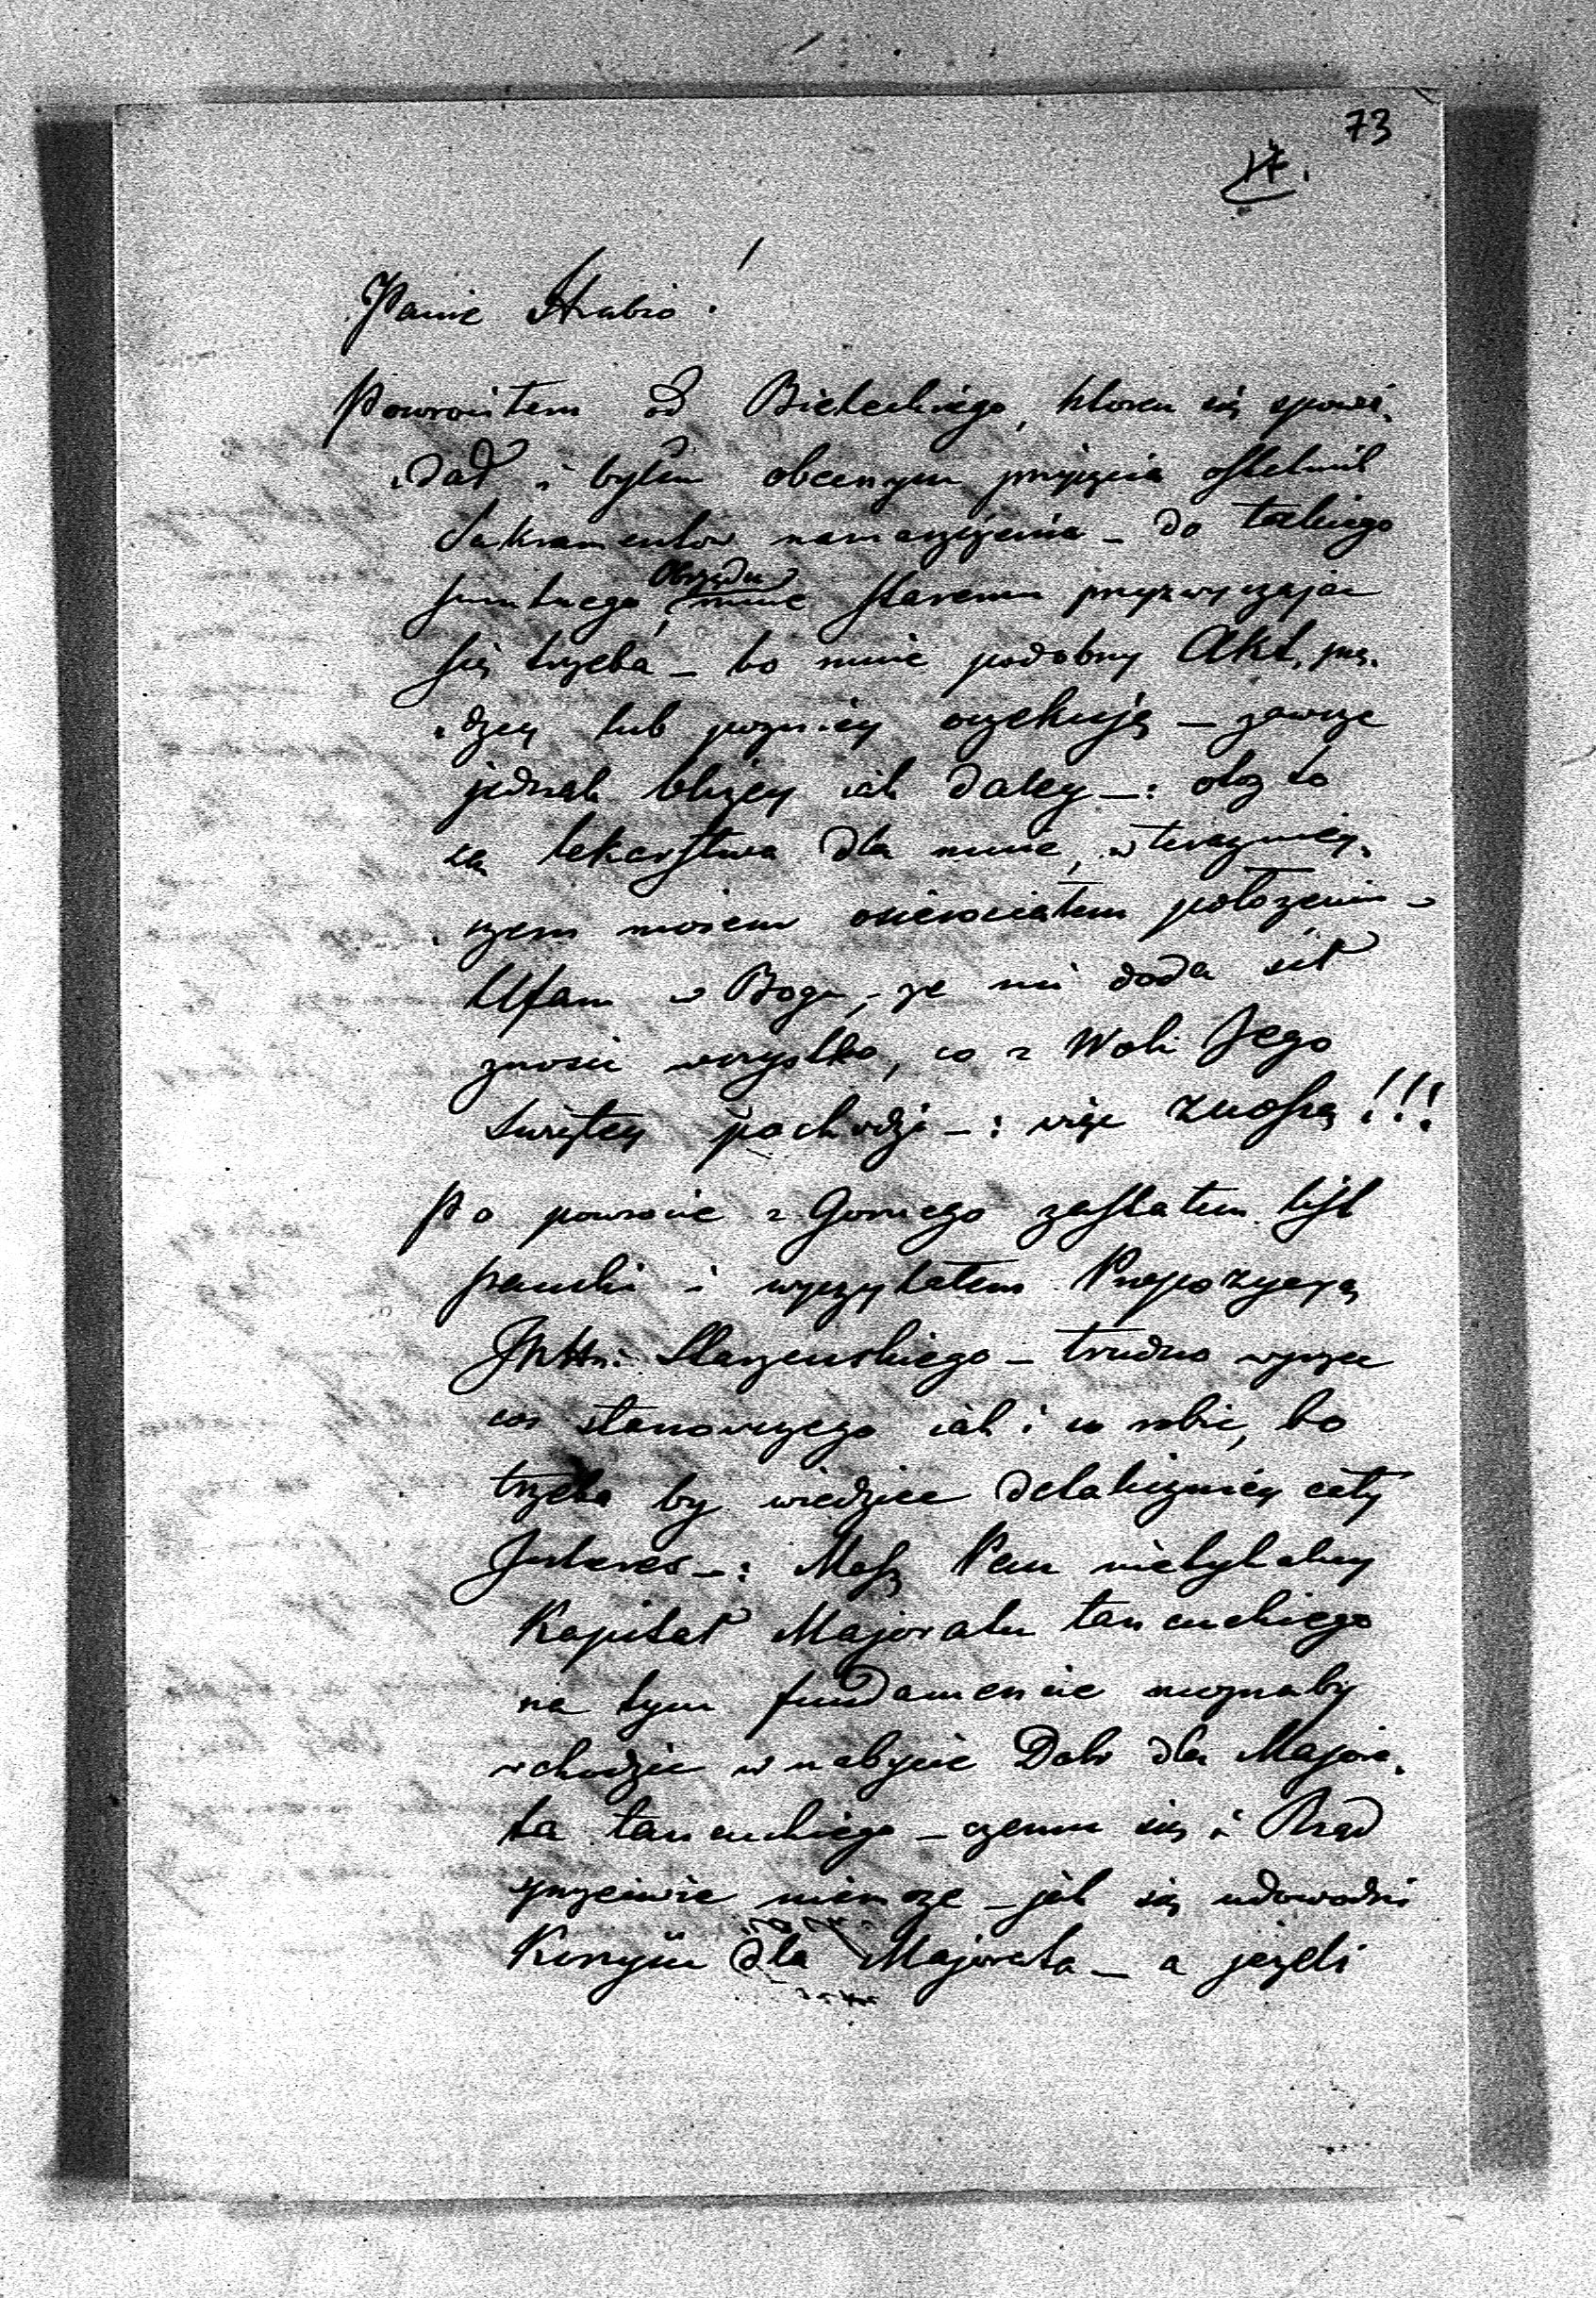 73
17.
Panie Hrabio!
Powrociłem od Bieleckiego, ktoren się spowia
dał i byłem obecnym przyjęcia ostatnich
Sakramentow namaszczenia - do takiego
smutnego Obrzędu, mnie staremu przyzwyczajac
się trzeba - bo mnie podobny Akt, prę
dzey lub pozniey oczekuję - zawsze
jednak bliżey iak daley -: otoz to
są lekarstwa dla mnie, w terazniey
szem mojem osierociałem położeniu -
Ufam w Bogu, - ze mi doda sił
znosic wszystko, co z Woli Jego
Swiętey pochodzi -: więc znoszę!!!
Po powrocie z Gornego zastałem list
panski i wyczytałem Propozycyą
JWHr: Starzenskiego - trudno wyrzec
cos stanowczego iak i co robic, bo
trzeba by wiedziec detaliczniey cały
Interes -: Masz Pan nietykalny
Kapitał Majoratu łancuckiego
na tym fundamencie moznaby
wchodzic w nabycie Dobr dla Majora
ta łancuckiego - czemu się i Rząd
sprzeciwic niemoze - jak się udowodni
Korzysc dla Majorata - a jezeli